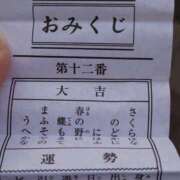 おみくじ
第十二番
大吉
さくら
のど
春の野に
蝶も
まふその
うへ
運勢